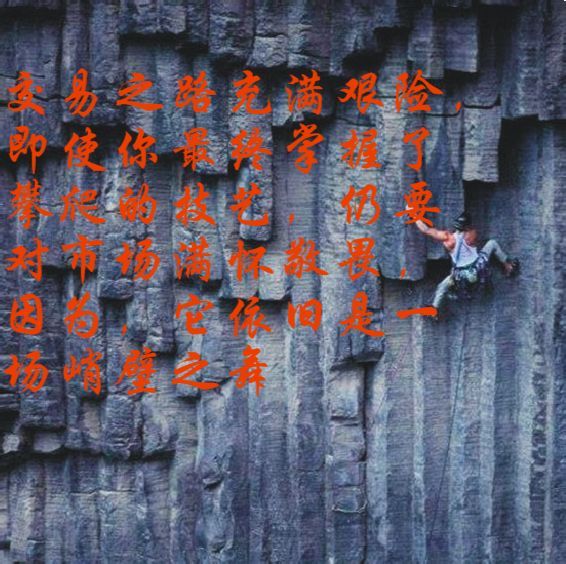 交易之路充满艰险，
即使你最终掌握了
攀爬的技艺，仍要
对市场满怀敬畏，
因为，它依旧是一
场峭壁之舞